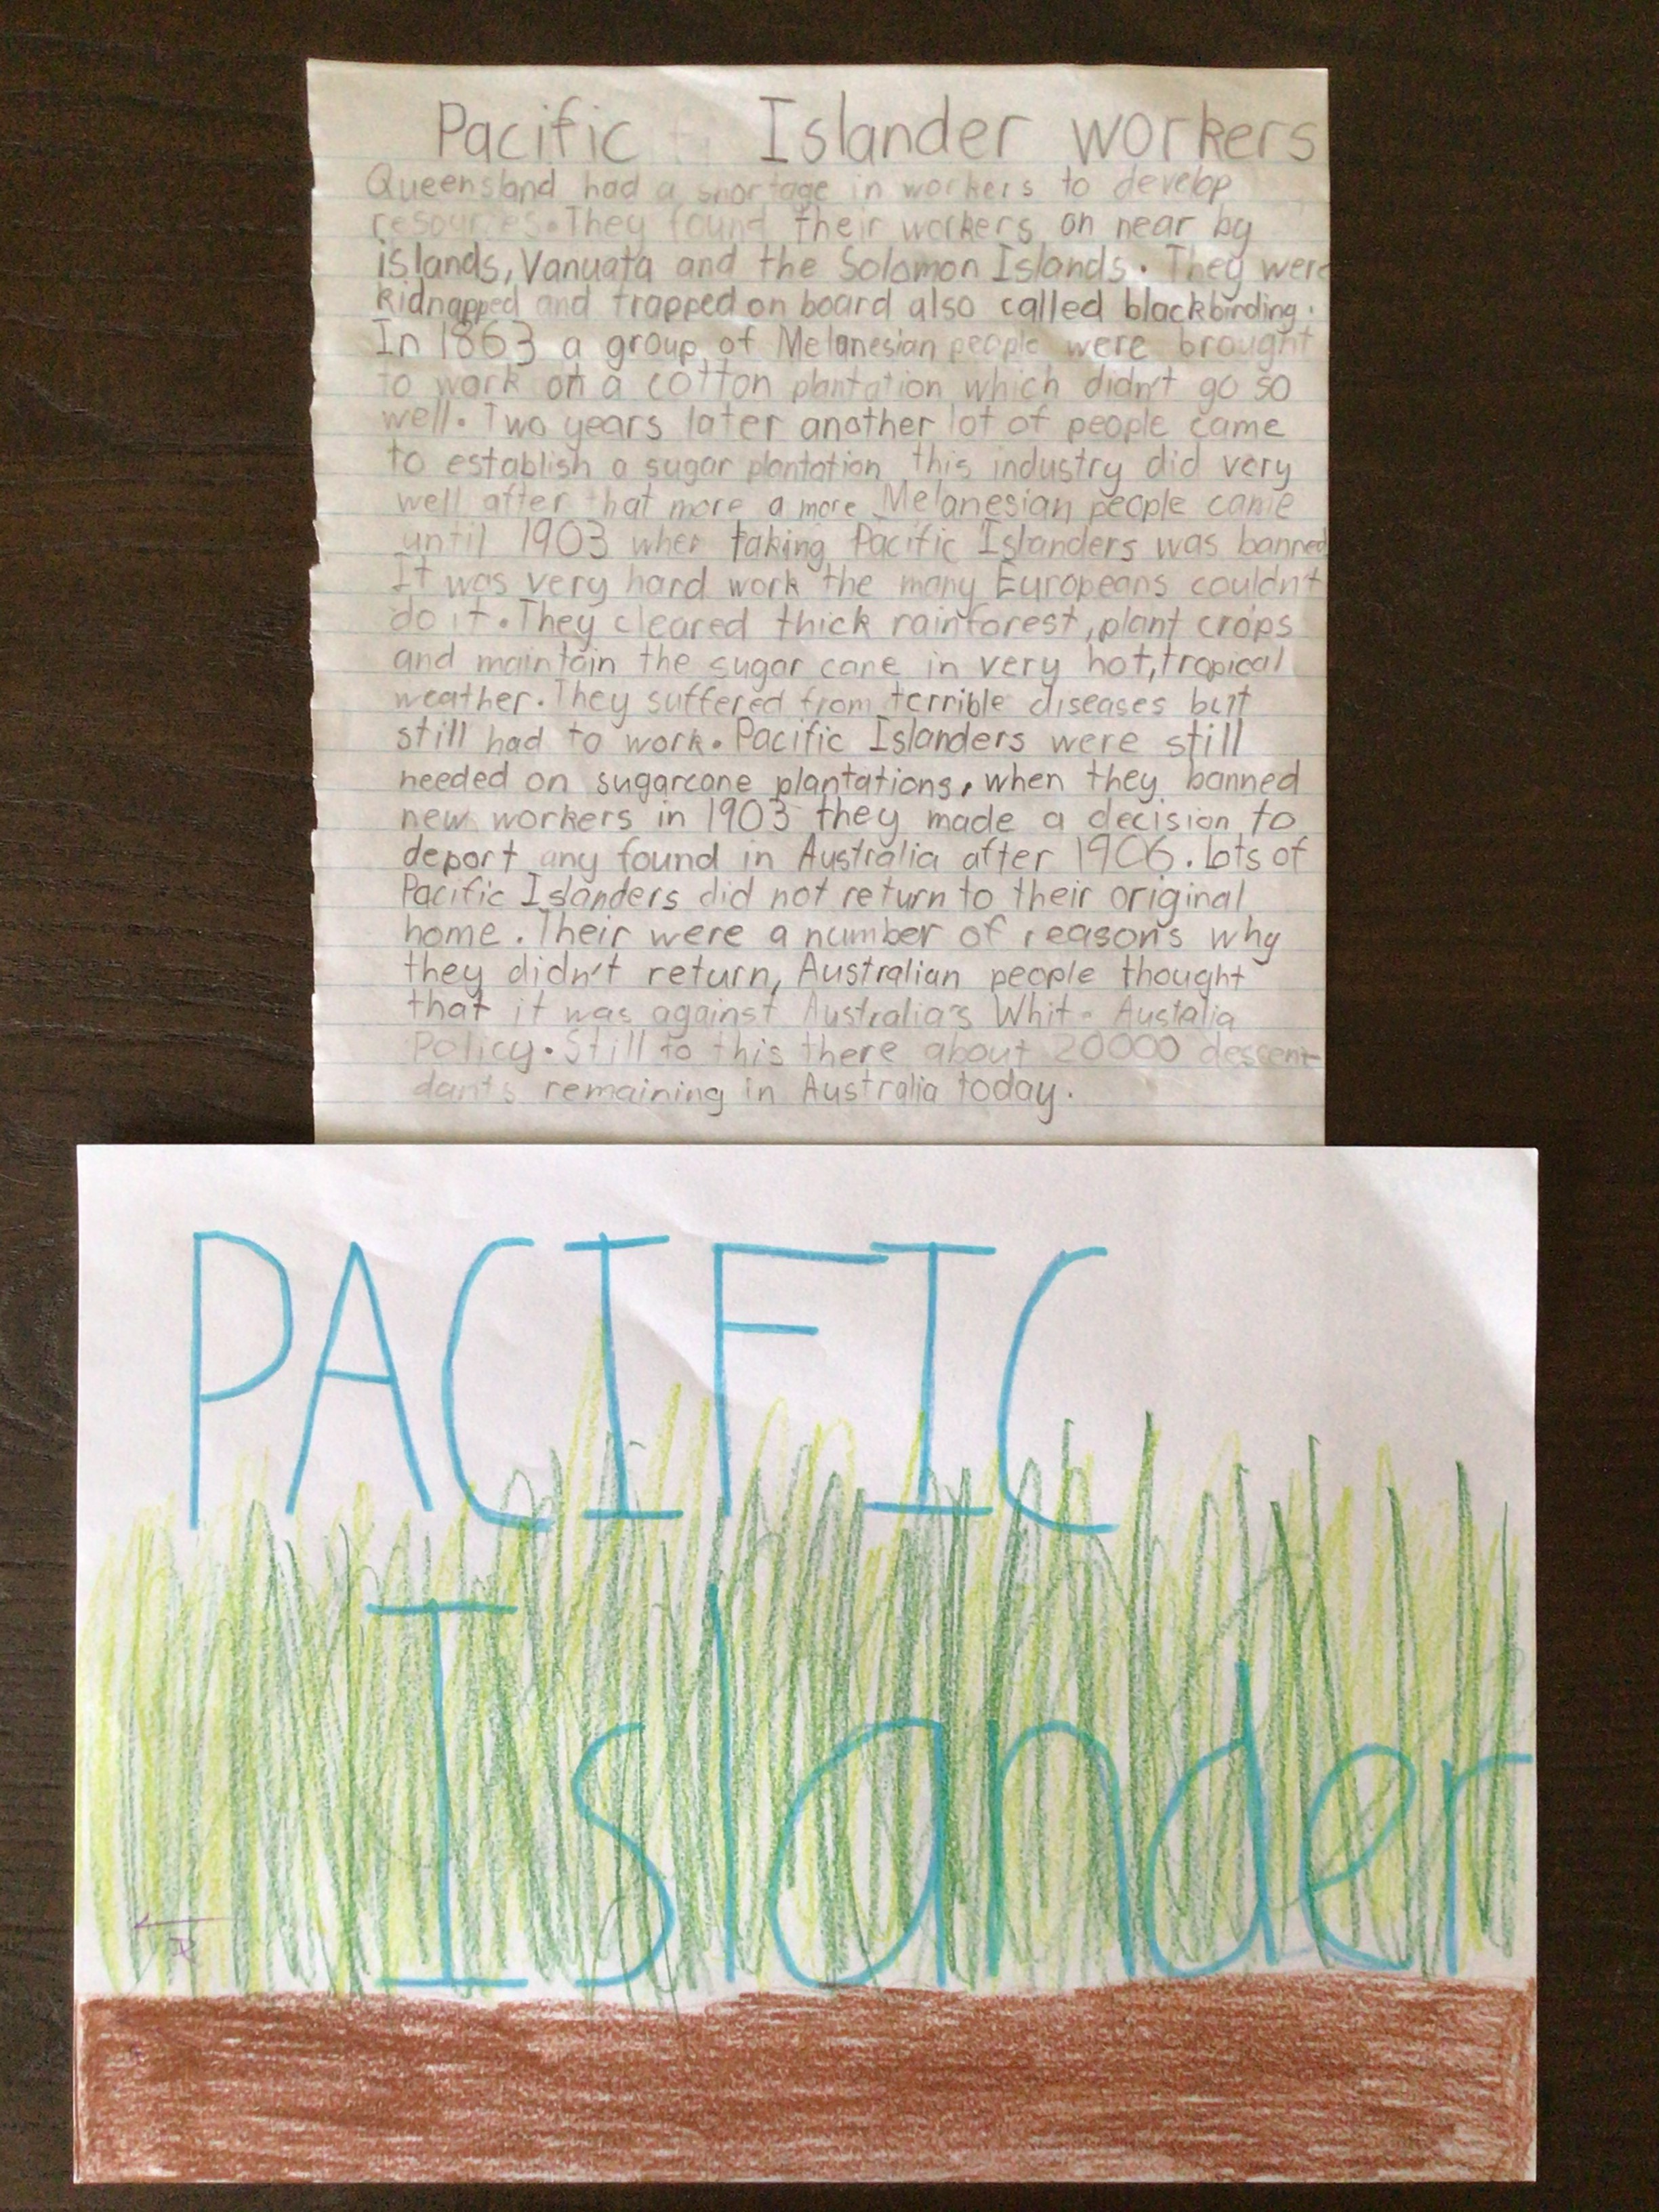 Pacific Islander workers
Queensland had a shortage in workers to develop
resources. They found their workers on near by
islands, Vanuata and the Solomon Islands. They were
kidnapped and trapped on board also called blackbirding.
In 1863 a group of Melanesian people were brought
to work on a cotton plantation which didn't go so
well. Two years later another lot of people came
to establish a sugar plantation this industry did very
well after that more a more Melanesian people came
until 1903 when taking Pacific Islanders was banned
It was very hard work the many Europeans couldn't
do it. They cleared thick rainforest, plant crops
and maintain the sugar cane in very hot, tropical
weather. They suffered from terrible diseases but
still had to work. Pacific Islanders were still
needed on sugarcane plantations, when they banned
new workers in 1903 they made a decision to
deport any found in Australia after 1906. Lots of
Pacific Islanders did not return to their original
home. Their were a number of reasons why
they didn't return, Australian people thought
that it was against Australia's Whit Austalia
Policy. Still to this there about 20000 descen-
dants remaining in Australia today.
PACIFIC
Islander